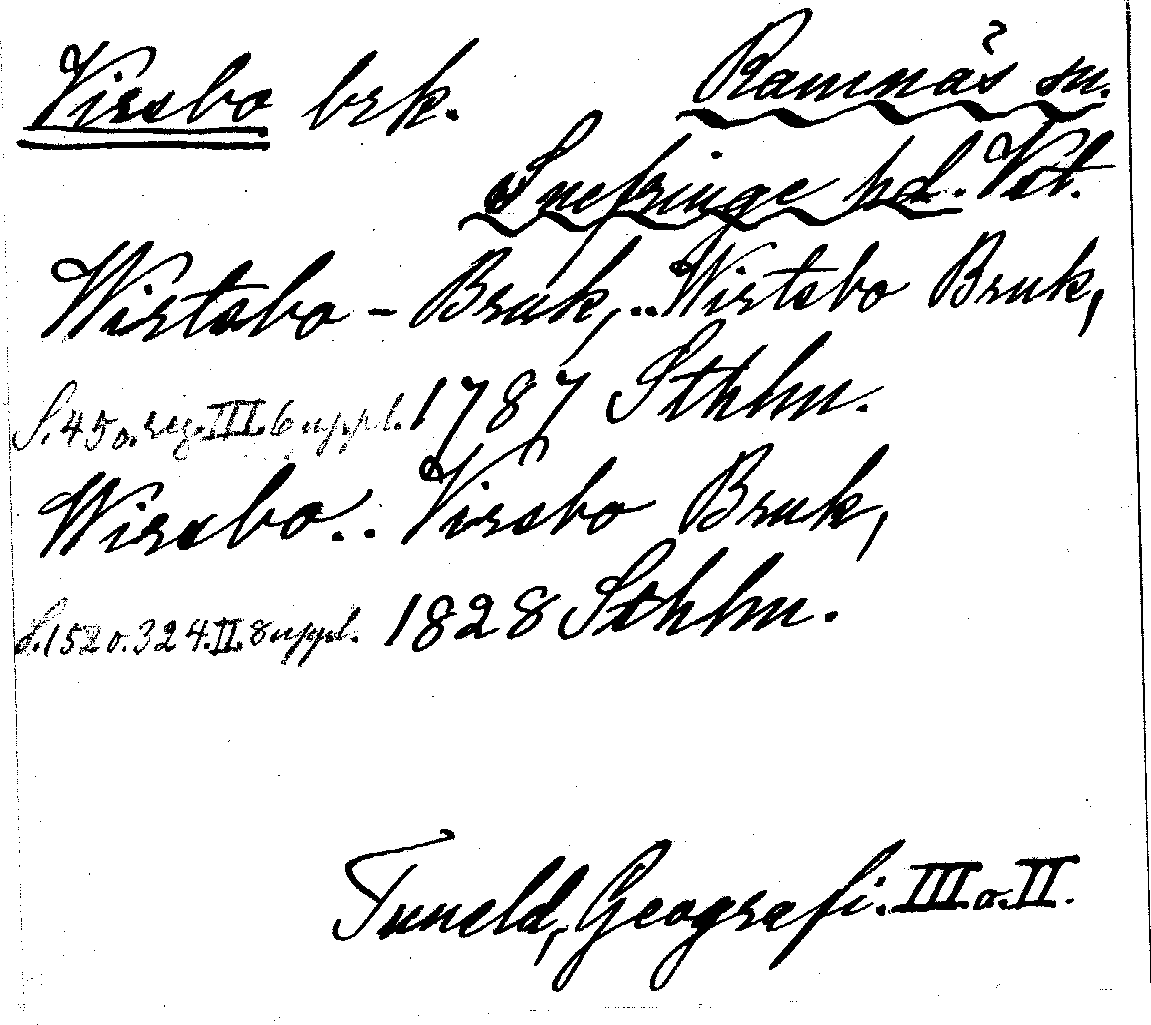 Virsbo brk. Ramnäs sn.
Snefringe hd. Vstl.
Wirtsbo - Bruk,.. Wirtsbo Bruk,
S. 45 o. reg. III. 6 uppl. 1787 Sthlm.
Wirsbo.. Virsbo Bruk,
S. 152 o. 324. II. 8 uppl. 1828 Sthlm.
Tuneld, Geografi. III o. II.